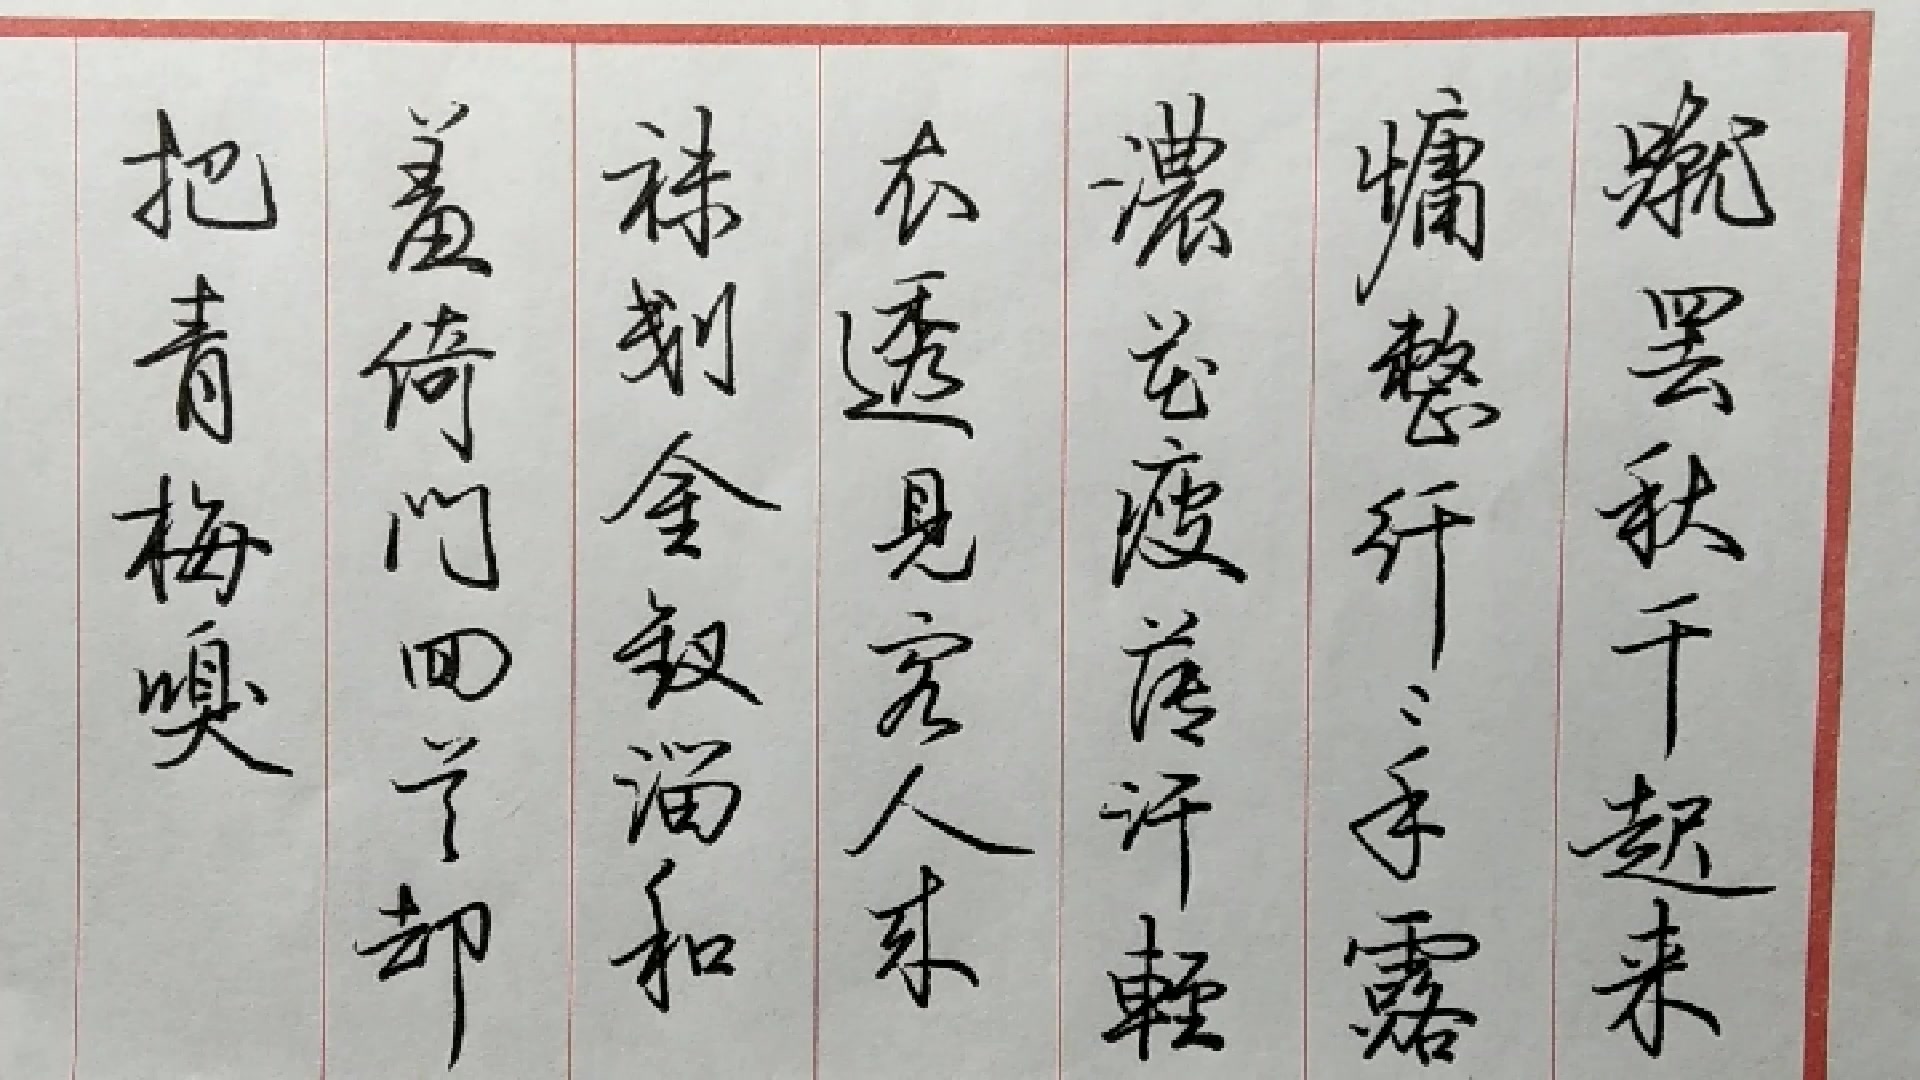 蹴罢秋千起来
慵整纤〻手露
濃花瘦薄汗輕
衣透見客人来
袜刬金釵溜和
羞倚門回首却
把青梅嗅